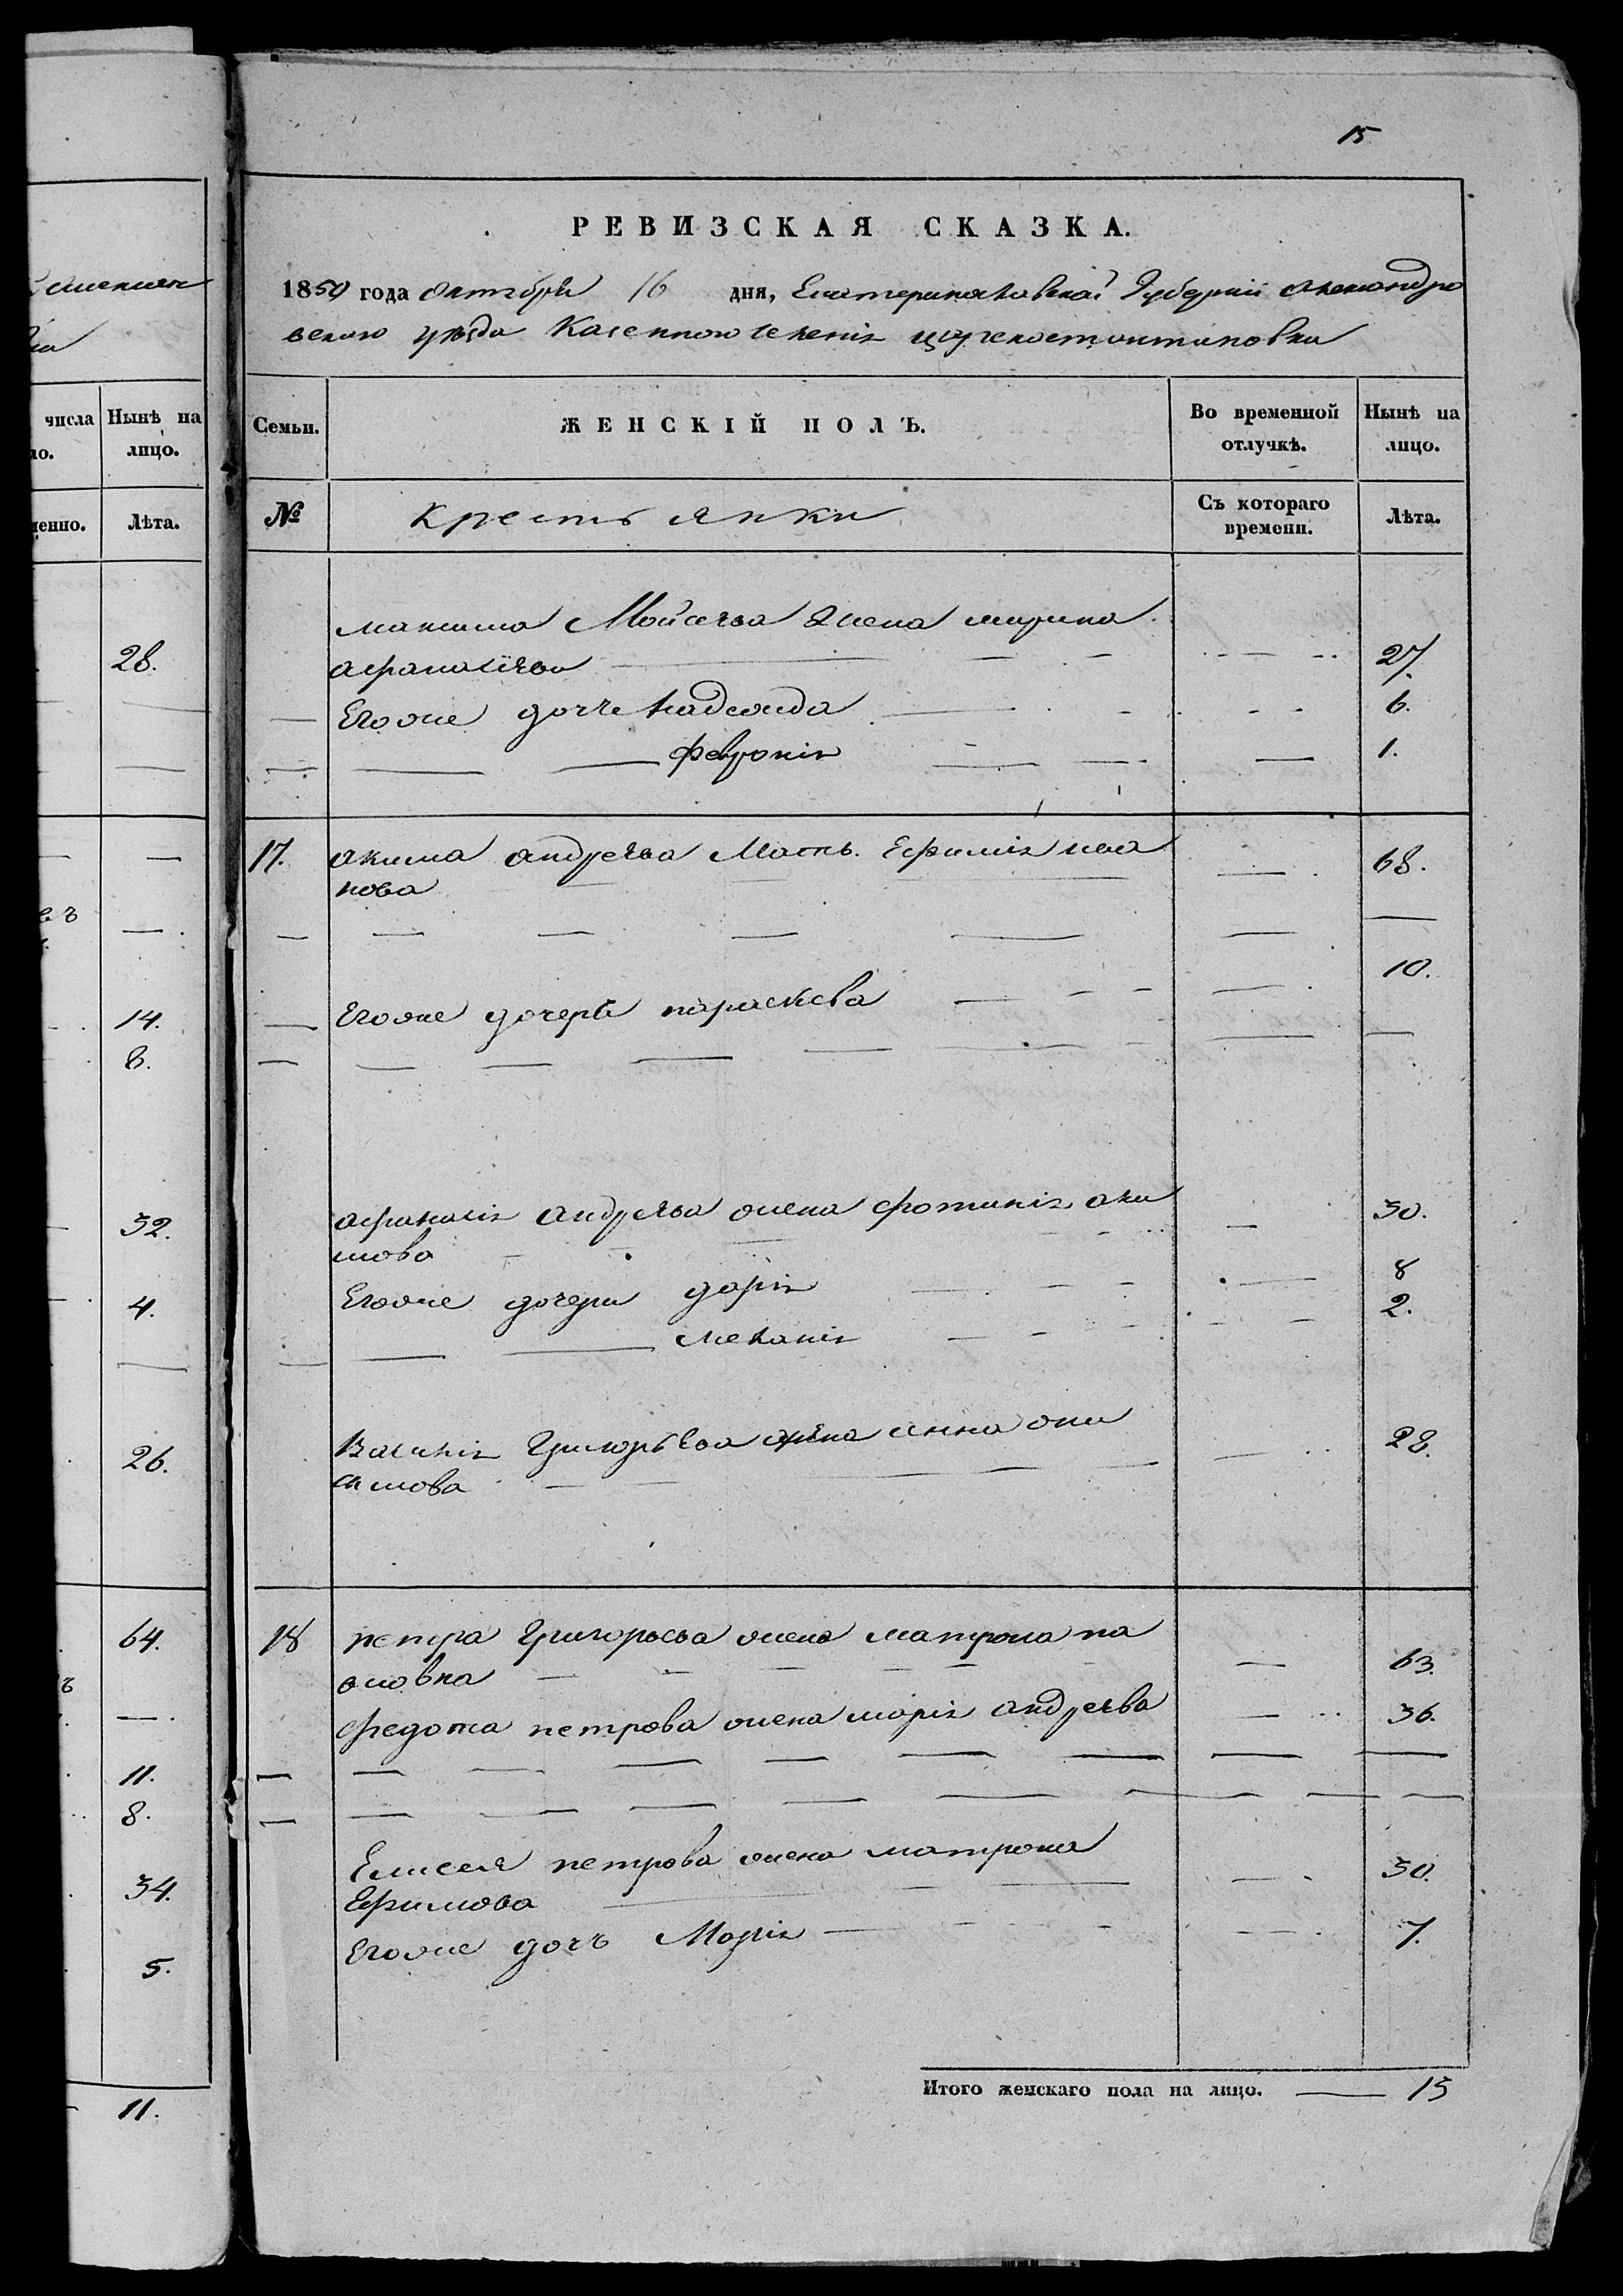 15
РЕВИЗСКАЯ СКАЗКА.
1850 года октября 16 дня, Екатеринославской Губернии Александро
вского уезда Казенного селения
числа Нынѣ на
ло. лицо.
Семьи. ЖЕНСКІЙ ПОЛЪ. Во временной Нынѣ на
отлучкѣ. лицо.
ленно. Лѣта.
№ Крестьянки Съ котораго Лѣта.
времени.
максима Мойсеева жена марина
28. афанасіева 27.
Егоже дочь надежда 6.
февронія 1.
17. акима андреева Мать Ефимія ива 68.
нова
14. Егоже дочерь параскева 10.
8.
32. афанасія андреева жена фотинія аки 30.
мова
4. Егоже дочери дарія 8
меланія 2.
26. Василія Григорьева жена анна они 28.
симова
64. 18 петра Григорьева жена матрона па 63.
федота петрова жена марія андреева 36.
11.
8.
34. Елисея петрова жена матрона 30.
Ефимова
5. Егоже дочь Марія 7.
11. Итого женскаго пола на лицо. 13